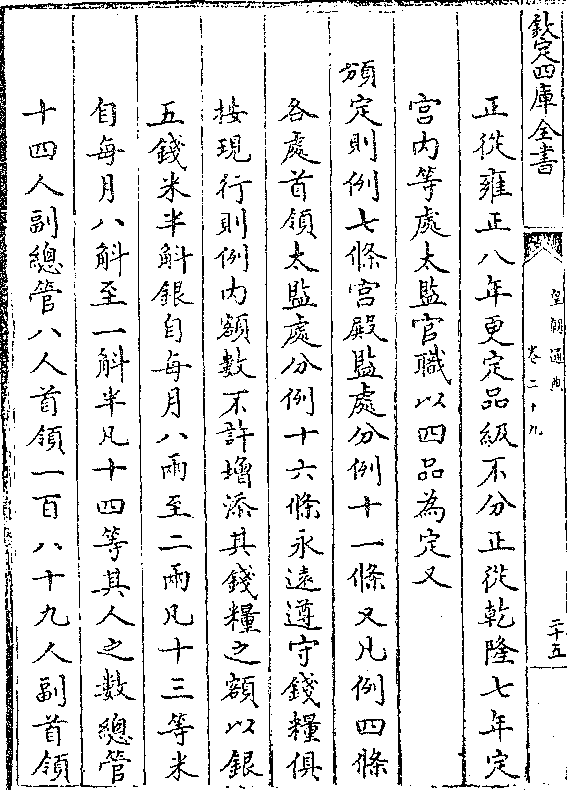 欽定四庫全書
皇朝通典
卷二十九
二十五
正從雍正八年更定品級不分正從乾隆七年定
宮内等處太監官職以四品為定又
頒定則例七條宮殿監處分例十一條又凡例四條
各處首領太監處分例十六條永遠遵守錢糧俱
按現行則例内額數不許增添其錢糧之額以銀
五錢米半斛銀自每月八兩至二兩凡十三等米
自每月八斛至一斛半凡十四等其人之數總管
十四人副總管八人首領一百八十九人副首領